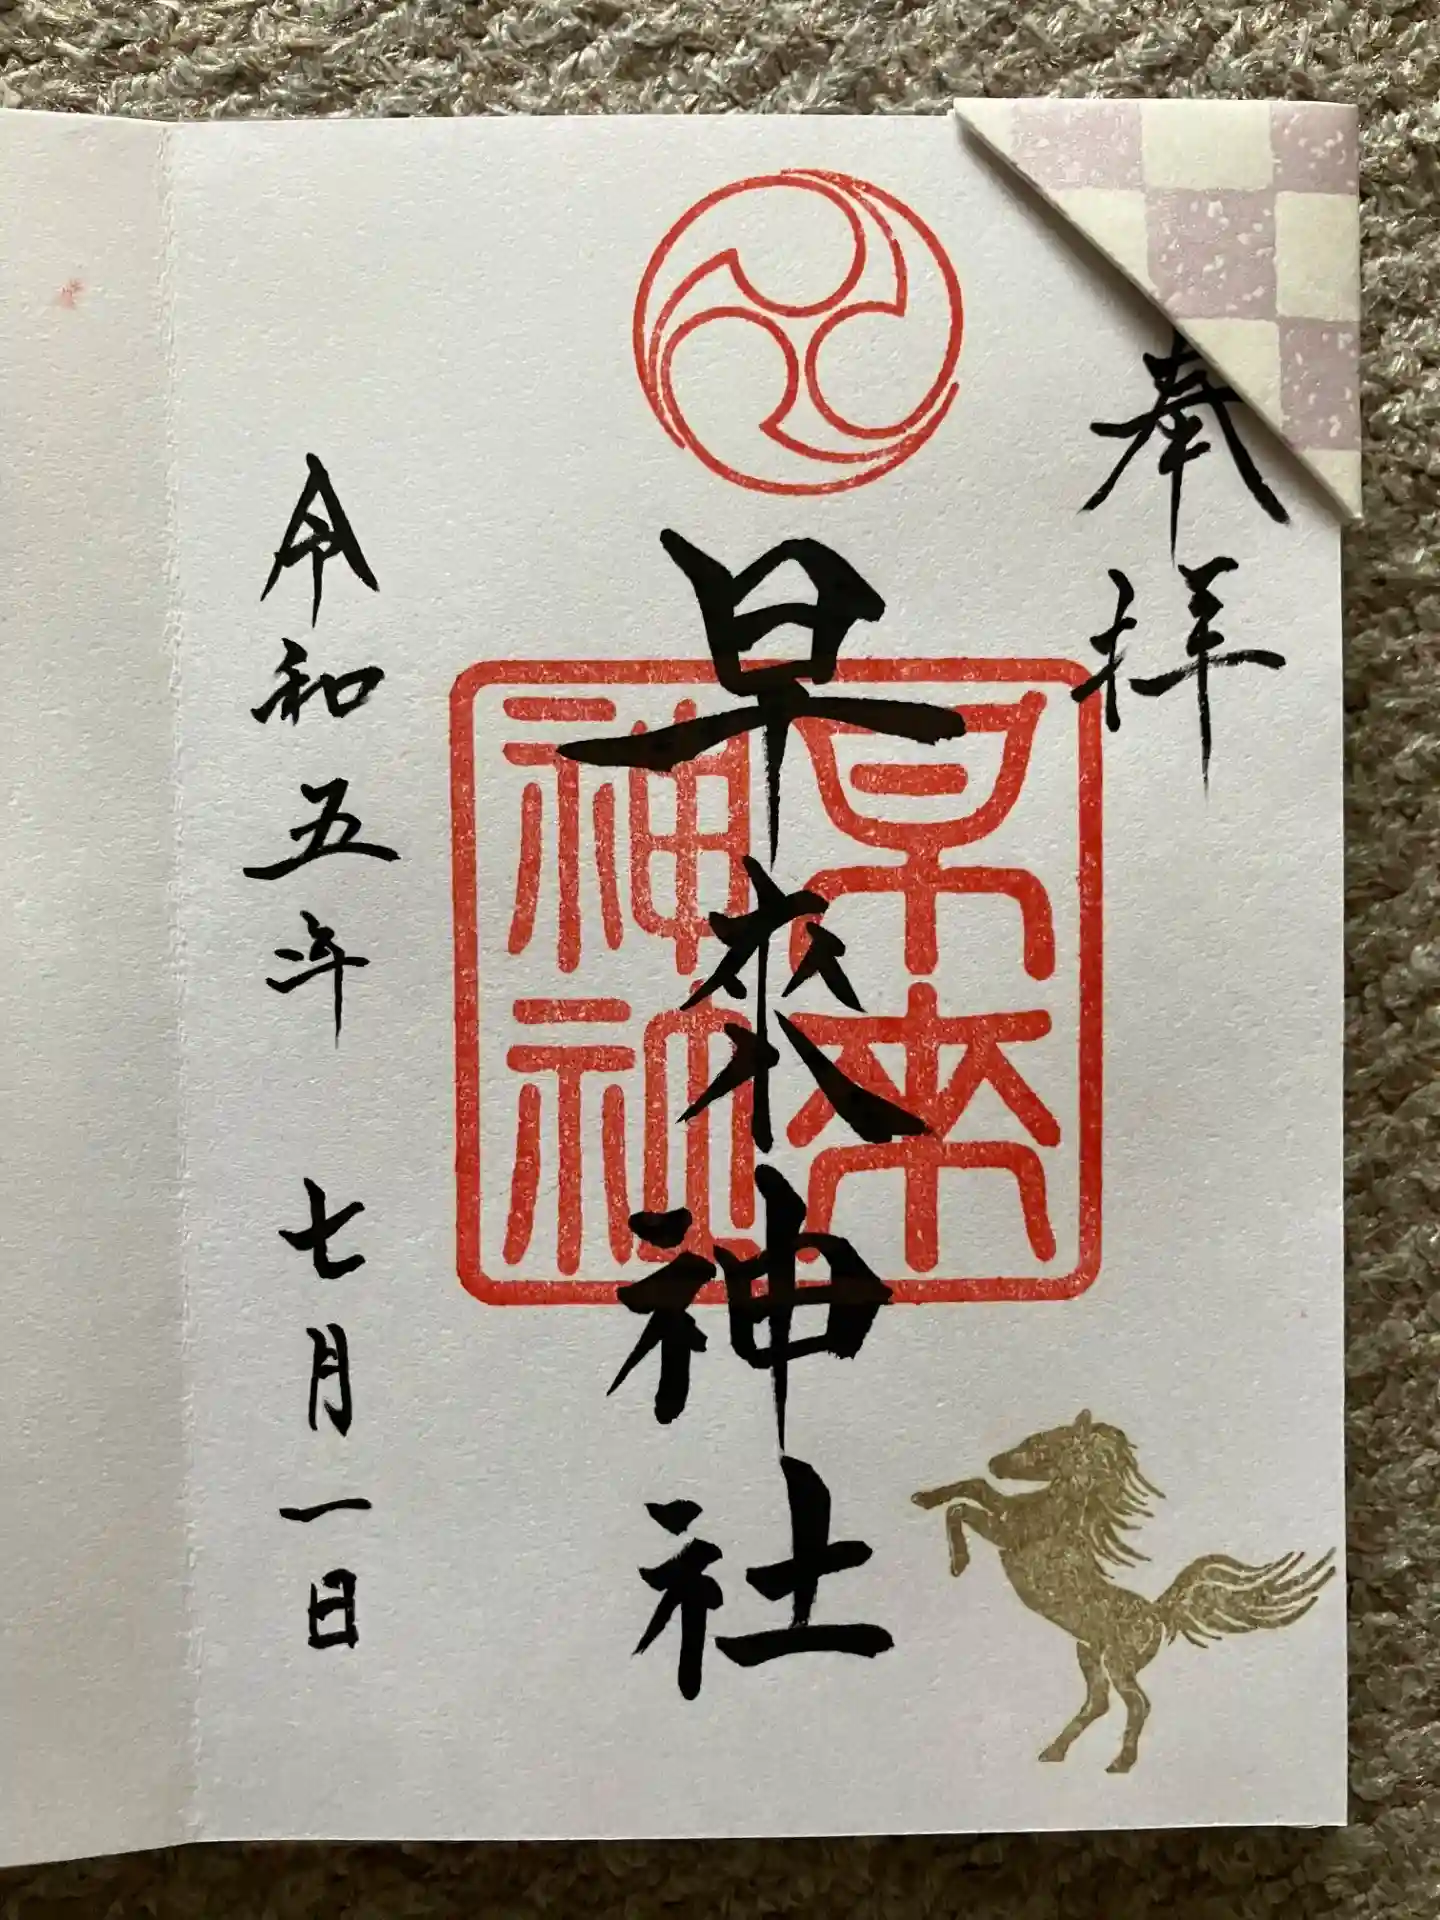 奉拝
早來神社
早來
神社
令和五年 七月一日